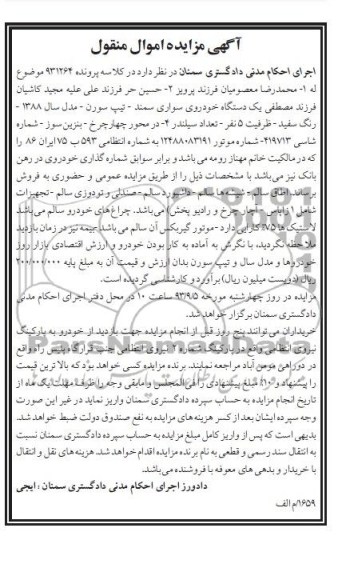 آگهی مزایده اموال منقول
اجرای احکام مدنی دادگستری سمنان در نظر دارد در کلاسه پرونده ۹۳۱۲۶۴ موضوع
له ۱- محمدرضا معصومیان فرزند پرویز ۲- حسین حر فرزند علی علیه مجید کاشیان
فرزند مصطفی یک دستگاه خودروی سواری سمند - تیپ سورن - مدل سال ۱۳۸۸ -
رنگ سفید - ظرفیت ۵ نفر - تعداد سیلندر ۴- در محور چهارچرخ - بنزین سوز - شماره
شاسی ۴۱۹۷۱۳- شماره موتور ۱۲۴۸۸۰۸۳۱۹۱ به شماره انتظامی ۵۹۳ ب ۷۵ ایران ۸۶ را
که در مالکیت خانم مهناز رومه می باشد و برابر سوابق شماره گذاری خودروی در رهن
بانک نیز می باشد با مشخصات ذیل را از طریق مزایده عمومی و حضوری به فروش
برساند. اطاق سالم - شیشه ها سالم - داشبورد سالم - صندلی و تودوزی سالم - تجهیزات
شامل (زاپاس - آچار چرخ و رادیو پخش) می باشد. چراغ های خودرو سالم می باشد
لاستیک ها ۷۵٪ کارایی دارد - موتور گیربکس آن سالم می باشد. بیمه نیز در زمان بازدید
ملاحظه نگردید، با نگرش به آماده به کار بودن خودرو و ارزش اقتصادی بازار روز
خودروها و مدل سال و تیپ سورن بدان ارزش و قیمت آن به مبلغ پایه ۲۰۰/۰۰۰/۰۰۰
ریال (دویست میلیون ریال) برآورد و کارشناسی گردیده است.
مزایده در روز چهارشنبه مورخه ۹۳/۹/۵ ساعت ۱۰ در محل دفتر اجرای احکام مدنی
دادگستری سمنان برگزار خواهد شد.
خریداران می توانند پنج روز قبل از انجام مزایده جهت بازدید از خودرو به پارکینگ
نیروی انتظامی واقع در پارکینگ شماره ۲ نیروی انتظامی جنب قرارگاه پلیس راه واقع
در دوراهی مومن آباد مراجعه نمایند. برنده مزایده کسی خواهد بود که بالاترین قیمت
را پیشنهاد و ۱۰٪ مبلغ پیشنهادی را فی المجلس و مابقی وجه را ظرف مهلت یک ماه از
تاریخ انجام مزایده به حساب سپرده دادگستری سمنان واریز نماید در غیر این صورت
وجه سپرده ایشان بعد از کسر هزینه های مزایده به نفع صندوق دولت ضبط خواهد شد.
بدیهی است که پس از واریز کامل مبلغ مزایده به حساب سپرده دادگستری سمنان نسبت
به انتقال سند رسمی و قطعی به نام برنده مزایده اقدام خواهد شد. هزینه های نقل و انتقال
با خریدار و بدهی های معوقه با فروشنده می باشد.
دادورز اجرای احکام مدنی دادگستری سمنان : ایجی
۱۶۵۹/م الف